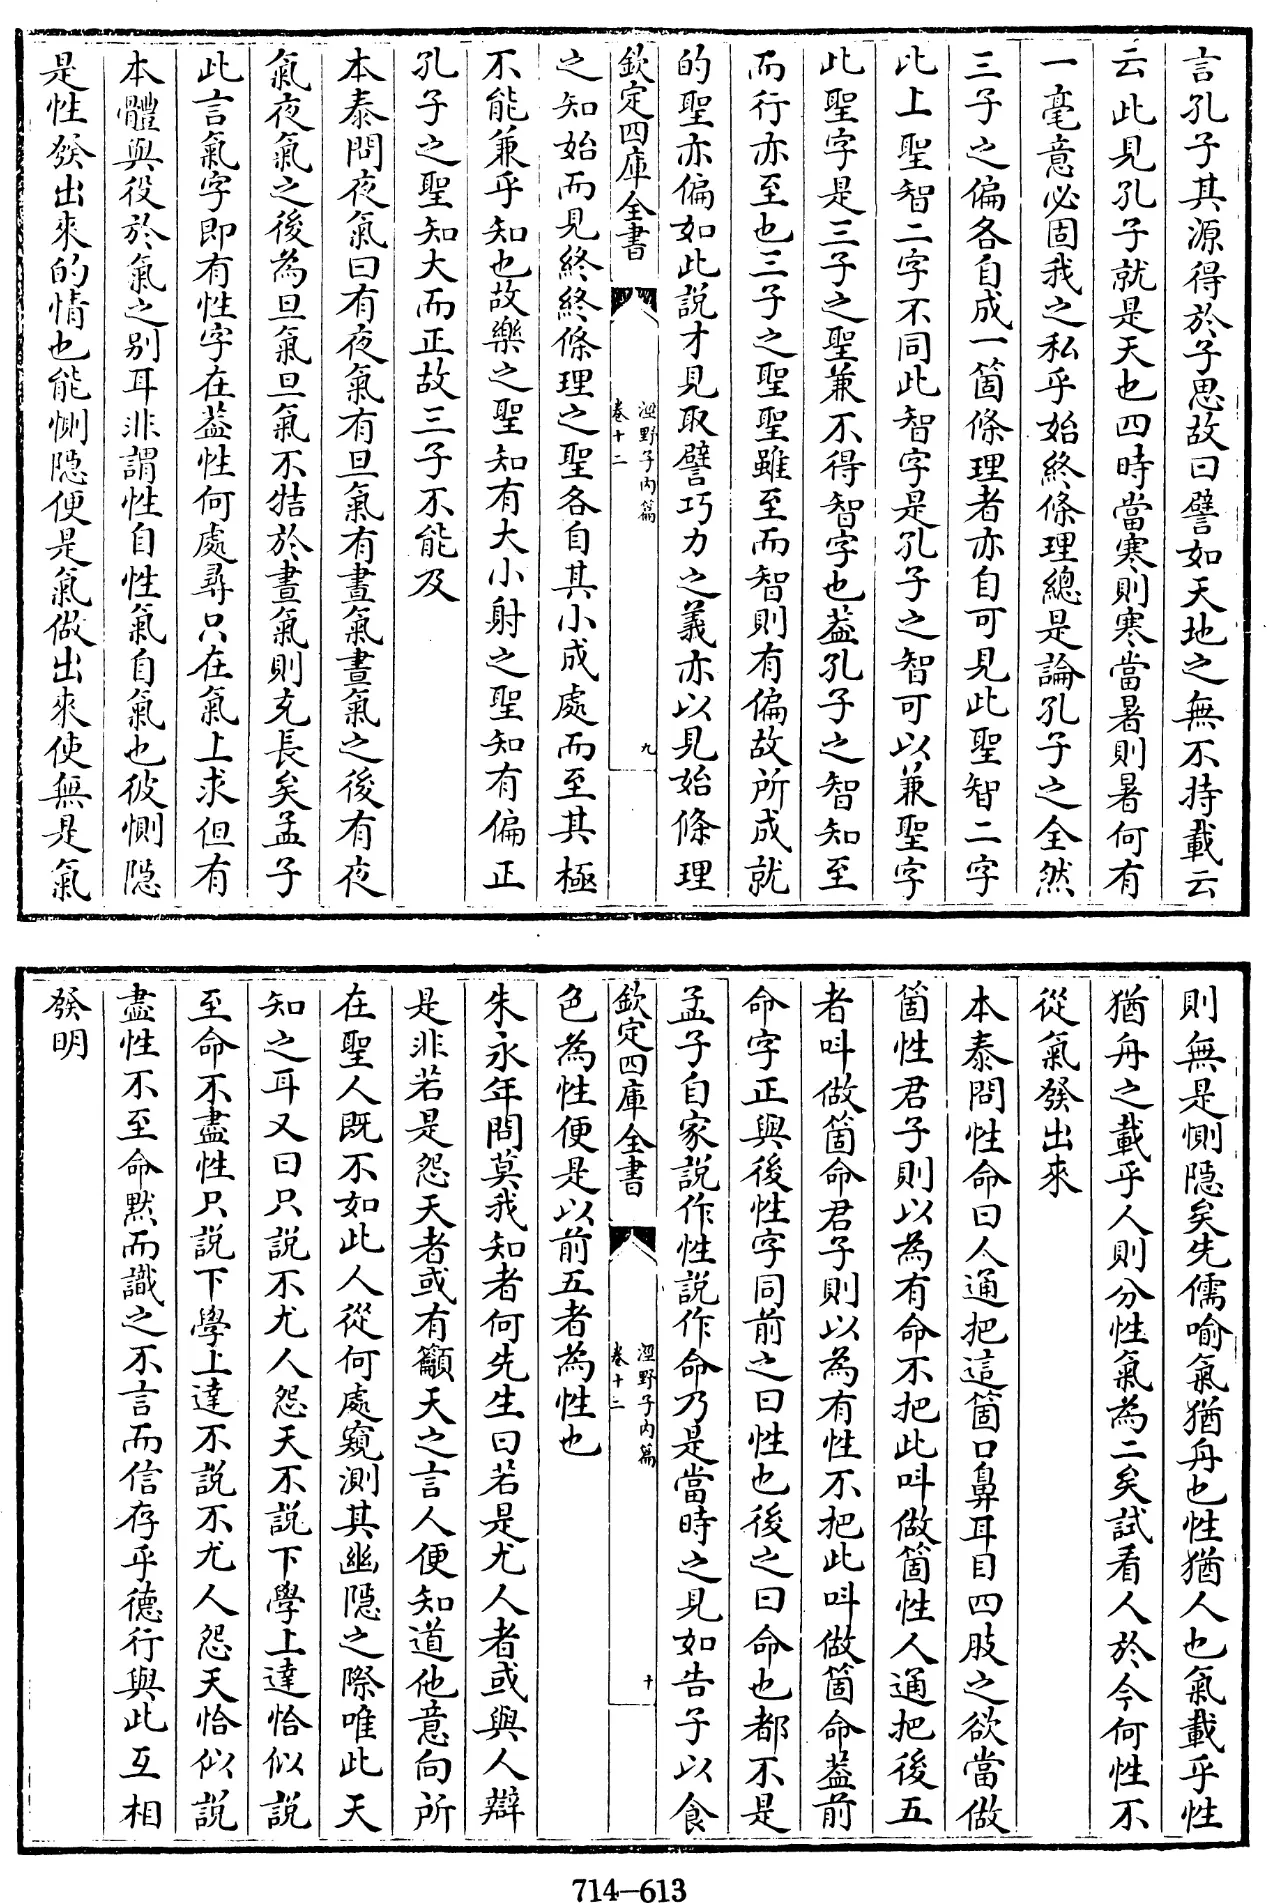 言孔子其源得於子思故曰譬如天地之無不持載云
云此見孔子就是天也四時當寒則寒當暑則暑何有
一毫意必固我之私乎始終條理總是論孔子之全然
三子之偏各自成一箇條理者亦自可見此聖智二字
此上聖智二字不同此智字是孔子之智可以兼聖字
此聖字是三子之聖兼不得智字也葢孔子之智知至
而行亦至也三子之聖聖雖至而智則有偏故所成就
的聖亦偏如此説才見取譬巧力之義亦以見始條理
欽定四庫全書
涇野子内篇
卷十二
九
之知始而見終終條理之聖各自其小成處而至其極
不能兼乎知也故樂之聖知有大小射之聖知有偏正
孔子之聖知大而正故三子不能及
本泰問夜氣曰有夜氣有旦氣有晝氣晝氣之後有夜
氣夜氣之後為旦氣旦氣不牿於晝氣則充長矣孟子
此言氣字即有性字在葢性何處尋只在氣上求但有
本體與役於氣之别耳非謂性自性氣自氣也彼惻隠
是性發出來的情也能惻隠便是氣做出來使無是氣
則無是惻隠矣先儒喻氣猶舟也性猶人也氣載乎性
猶舟之載乎人則分性氣為二矣試看人於今何性不
從氣發出來
本泰問性命曰人通把這箇口鼻耳目四肢之欲當做
箇性君子則以為有命不把此呌做箇性人通把後五
者呌做箇命君子則以為有性不把此呌做箇命葢前
命字正與後性字同前之曰性也後之曰命也都不是
孟子自家説作性説作命乃是當時之見如告子以食
欽定四庫全書
涇野子内篇
卷十二
十
色為性便是以前五者為性也
朱永年問莫我知者何先生曰若是尤人者或與人辯
是非若是怨天者或有籲天之言人便知道他意向所
在聖人既不如此人從何處窺測其幽隠之際唯此天
知之耳又曰只説不尤人怨天不説下學上達恰似説
至命不盡性只説下學上達不説不尤人怨天恰似説
盡性不至命黙而識之不言而信存乎徳行與此互相
發明
714-613